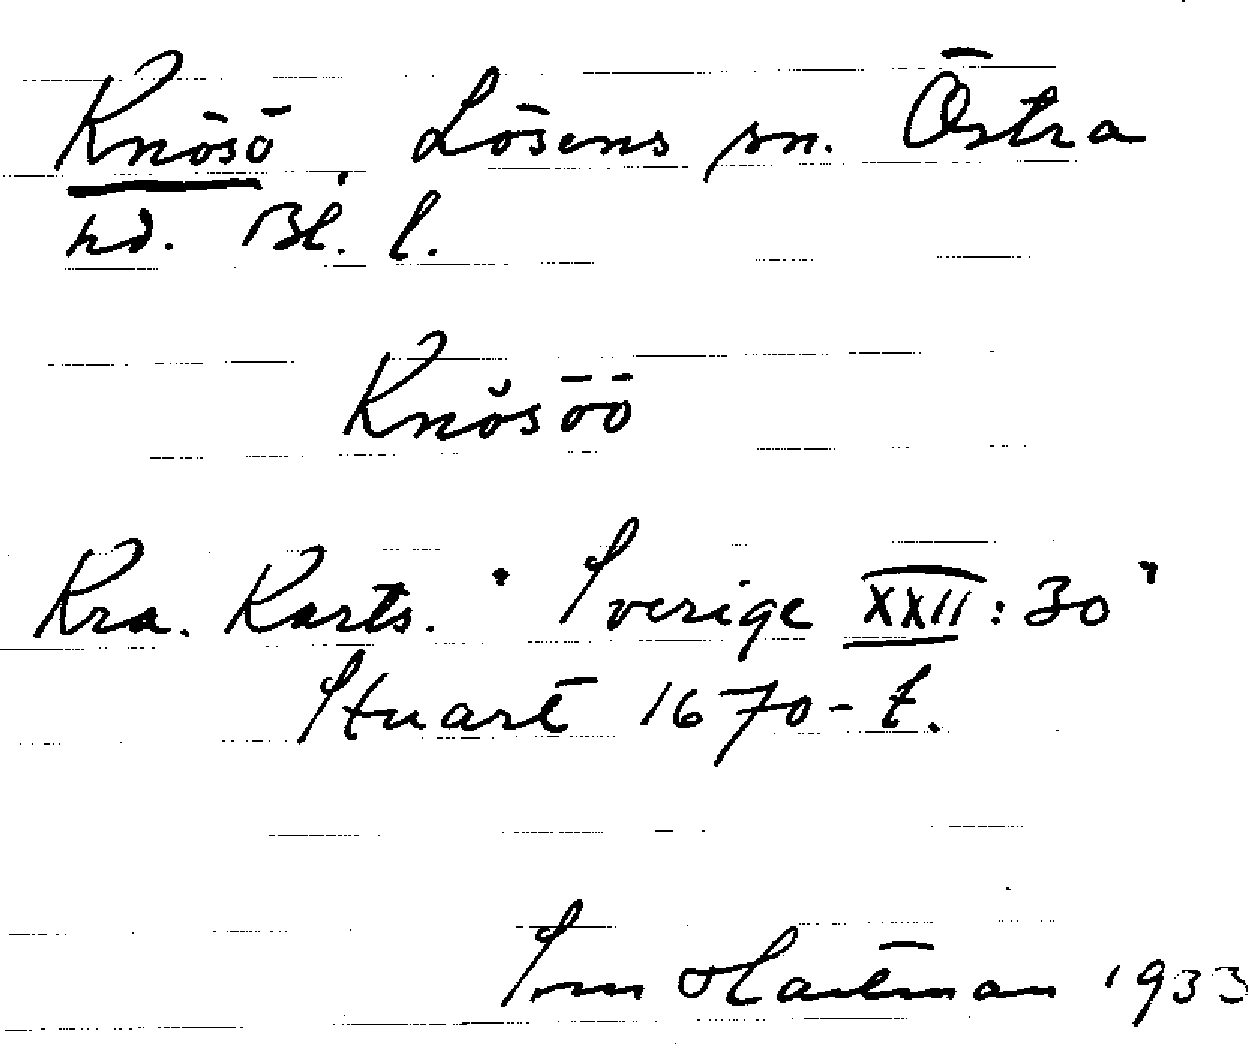 Knösö, Lösens sn. Östra
hd. Bl. l.
Knösöö
Kra. Karts. "Sverige XXII:30"
Stuart 1670-t.
Hartman 1933